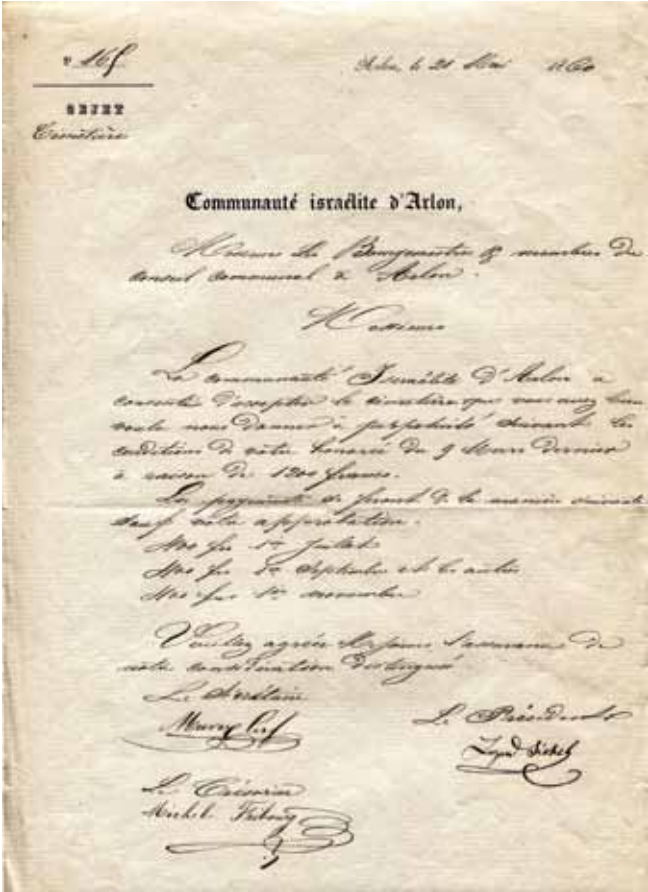 N° 165
Arlon, le 21 Mai 1860
OBJET
Cimetière
Communauté israélite d'Arlon,
Messieurs les Bourgmestre & membres du
Conseil communal à Arlon.
Messieurs
La communauté Israélite d'Arlon a
consentie d'accepter le cimetière que vous avez bien
voulu nous donner à perpétuité suivant les
conditions de votre honorée du 9 Mars dernier
à raison de 1200 francs.
Les payements se feront de la manière suivante
sauf votre approbation.
400 frs 1er Juillet
400 frs 1er Septembre et les autres
400 frs 1er novembre
Veuillez agréer Messieurs l'assurance de
notre considération distingué
Le Secrétaire
Le Président
Le Trésorier
Michel Fribourg